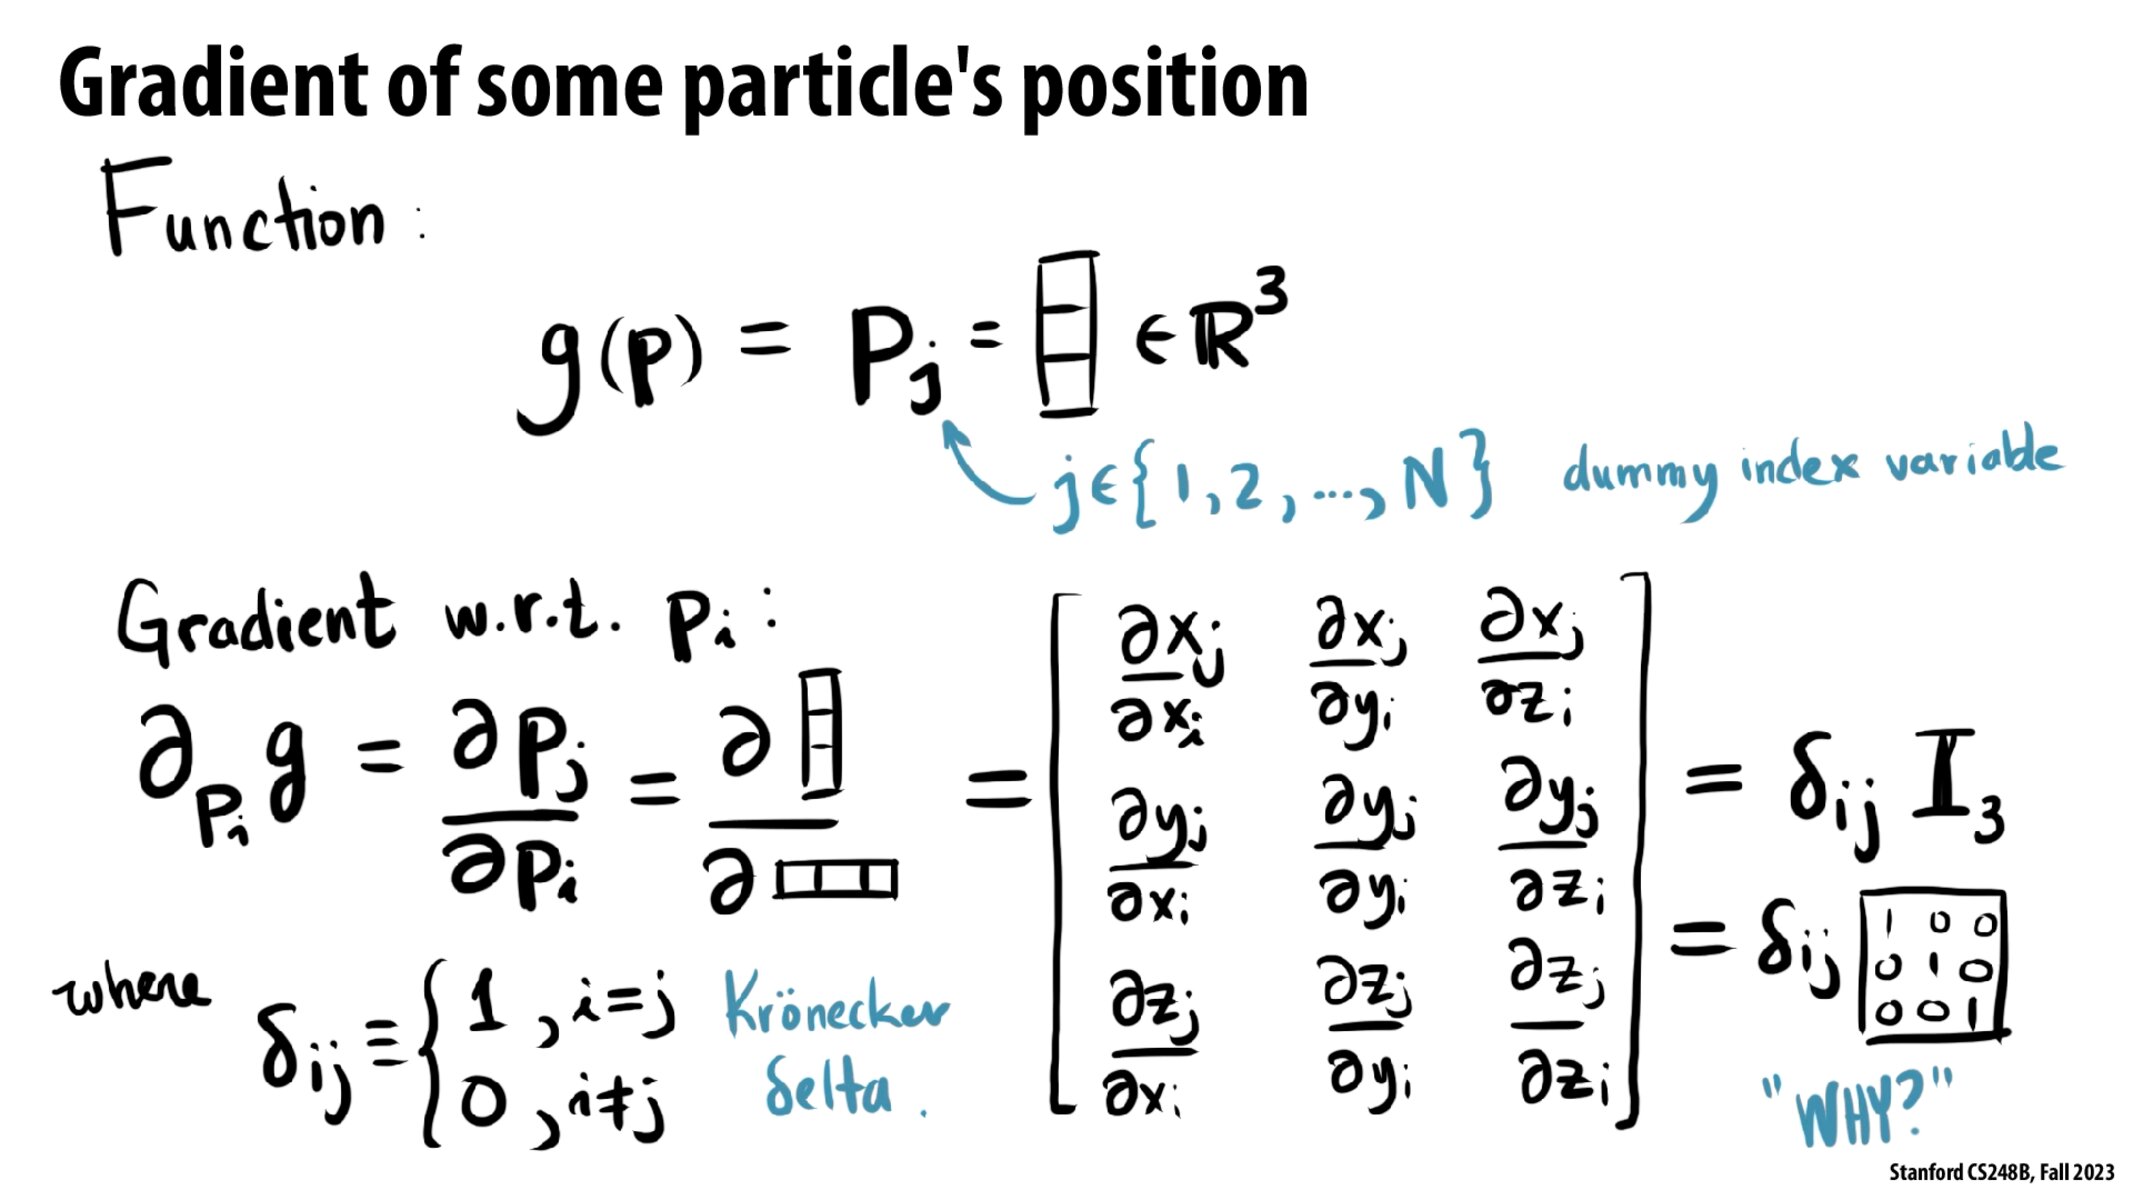 Gradient of some particle's position
Function :
g(p) = p_j = [] ∈ ℝ³
j∈{1,2,...,N} dummy index variable
Gradient w.r.t. p_i :
∂_{p_i} g = ∂p_j/∂p_i = ∂[]/∂[] = [ ∂x_j/∂x_i ∂x_j/∂y_i ∂x_j/∂z_i
∂y_j/∂x_i ∂y_j/∂y_i ∂y_j/∂z_i
∂z_j/∂x_i ∂z_j/∂y_i ∂z_j/∂z_i ]
= δ_ij I_3
= δ_ij [ 1 0 0
0 1 0
0 0 1 ]
"WHY?"
where δ_ij ≡ { 1 , i=j
0 , i≠j
Krönecker
delta.
Stanford CS248B, Fall 2023